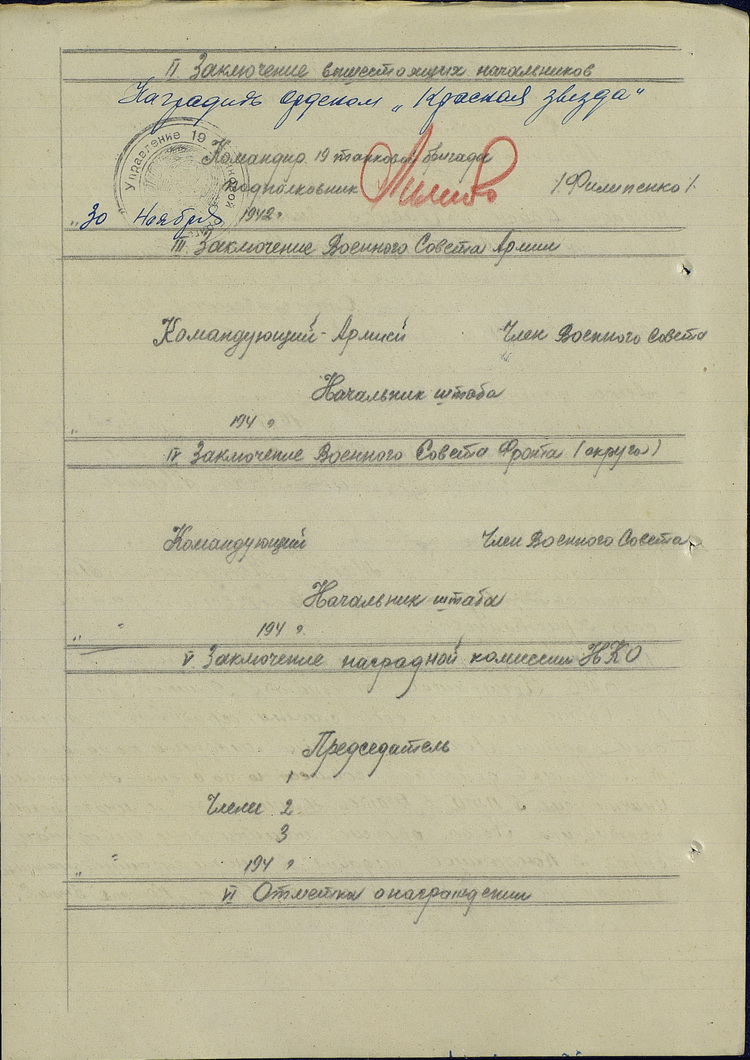 II Заключение вышестоящих начальников
Наградить орденом „Красная звезда"
Управление 19
Командир 19 танковой бригады
подполковник /Филипенко/.
„30 Ноября 1942г
III Заключение Военного Совета Армии
Командующий Армией Член Военного Совета
Начальник штаба
" 194 г
IV Заключение Военного Совета Фронта (округа)
Командующий Член Военного Совета
Начальник штаба
„ " 194 г.
V Заключение наградной комиссии НКО
Председатель
1
Члены 2
3
„ " 194 г
VI Отметка о награждении